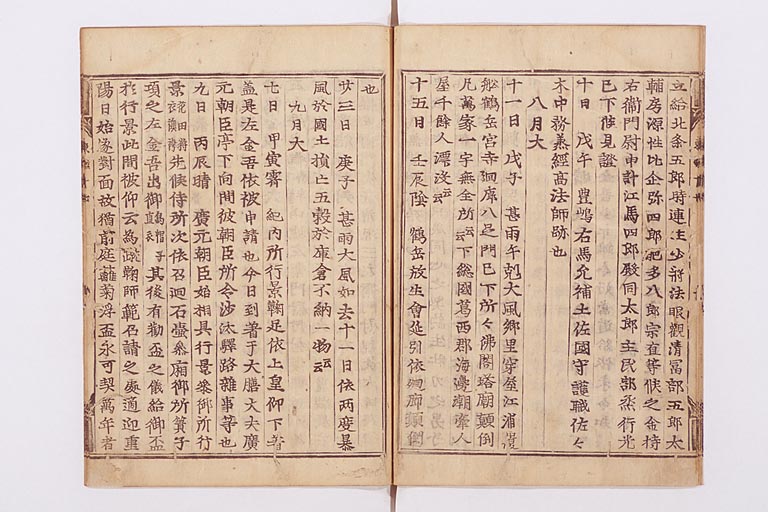 立給北条五郎時連主少将法眼観清冨部五郎太
輔房源性比企弥四郎肥多八郎宗直等候之金持
右衛門尉申計江馬四郎殿同太郎主民部丞行光
已下候見證
十日 戊午 豊嶋右馬允補土佐國守護職佐々
木中務兼經高法師跡也
八月大
十一日 戊午 甚雨午剋大風郷里穿屋江浦覆
舩鶴岳宮寺廻廊八足門已下所々佛閣塔廟顛倒
凡萬家一宇無全所云云下総國葛西郡海邊潮牽人
屋千餘人漂没云云
十五日 壬辰陰 鶴岳放生會延引依廻廊顛倒
也
廿三日 庚子 甚雨大風如去十一日依两度暴
風於國土損亡五穀於庫倉不納一物云云
九月大
七日 甲寅霽 紀内所行景鞠足依上皇仰下著
益是左金吾依被申請也今日到著于大膳大夫廣
元朝臣亭下向間彼朝臣所令沙汰驛路雜事等也
九日 丙辰晴 廣元朝臣始相具行景参御所行
景先候侍所次依召廻石壺参廂御所簀子
頃之左金吾出御其後有勸盃之儀給御盃
於行景此間被仰云為蹴鞠師範召請之處適迎重
陽日始遂對面故猶前庭籬菊浮盃永可契萬年者